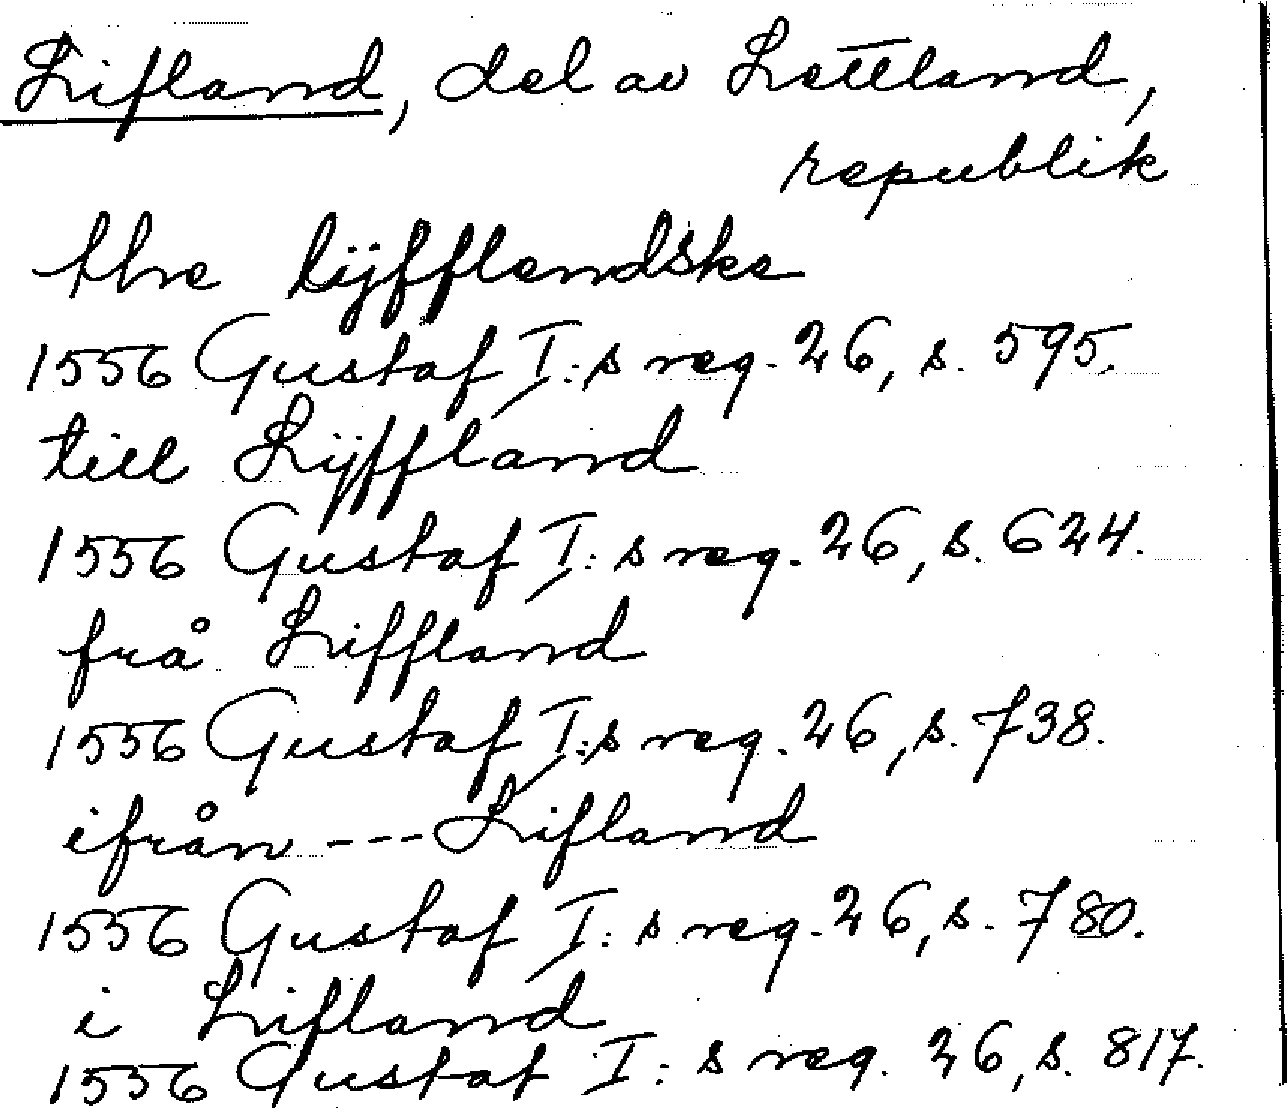 Lifland, del av Lettland,
republik
the lijfflendske
1556 Gustaf I:s reg. 26, s. 595.
till Lijffland
1556 Gustaf I:s reg. 26, s. 624.
frå Liffland
1556 Gustaf I:s reg. 26, s. 738.
ifrån --- Lifland
1556 Gustaf I:s reg. 26, s. 780.
i Lifland
1556 Gustaf I:s reg. 26, s. 817.